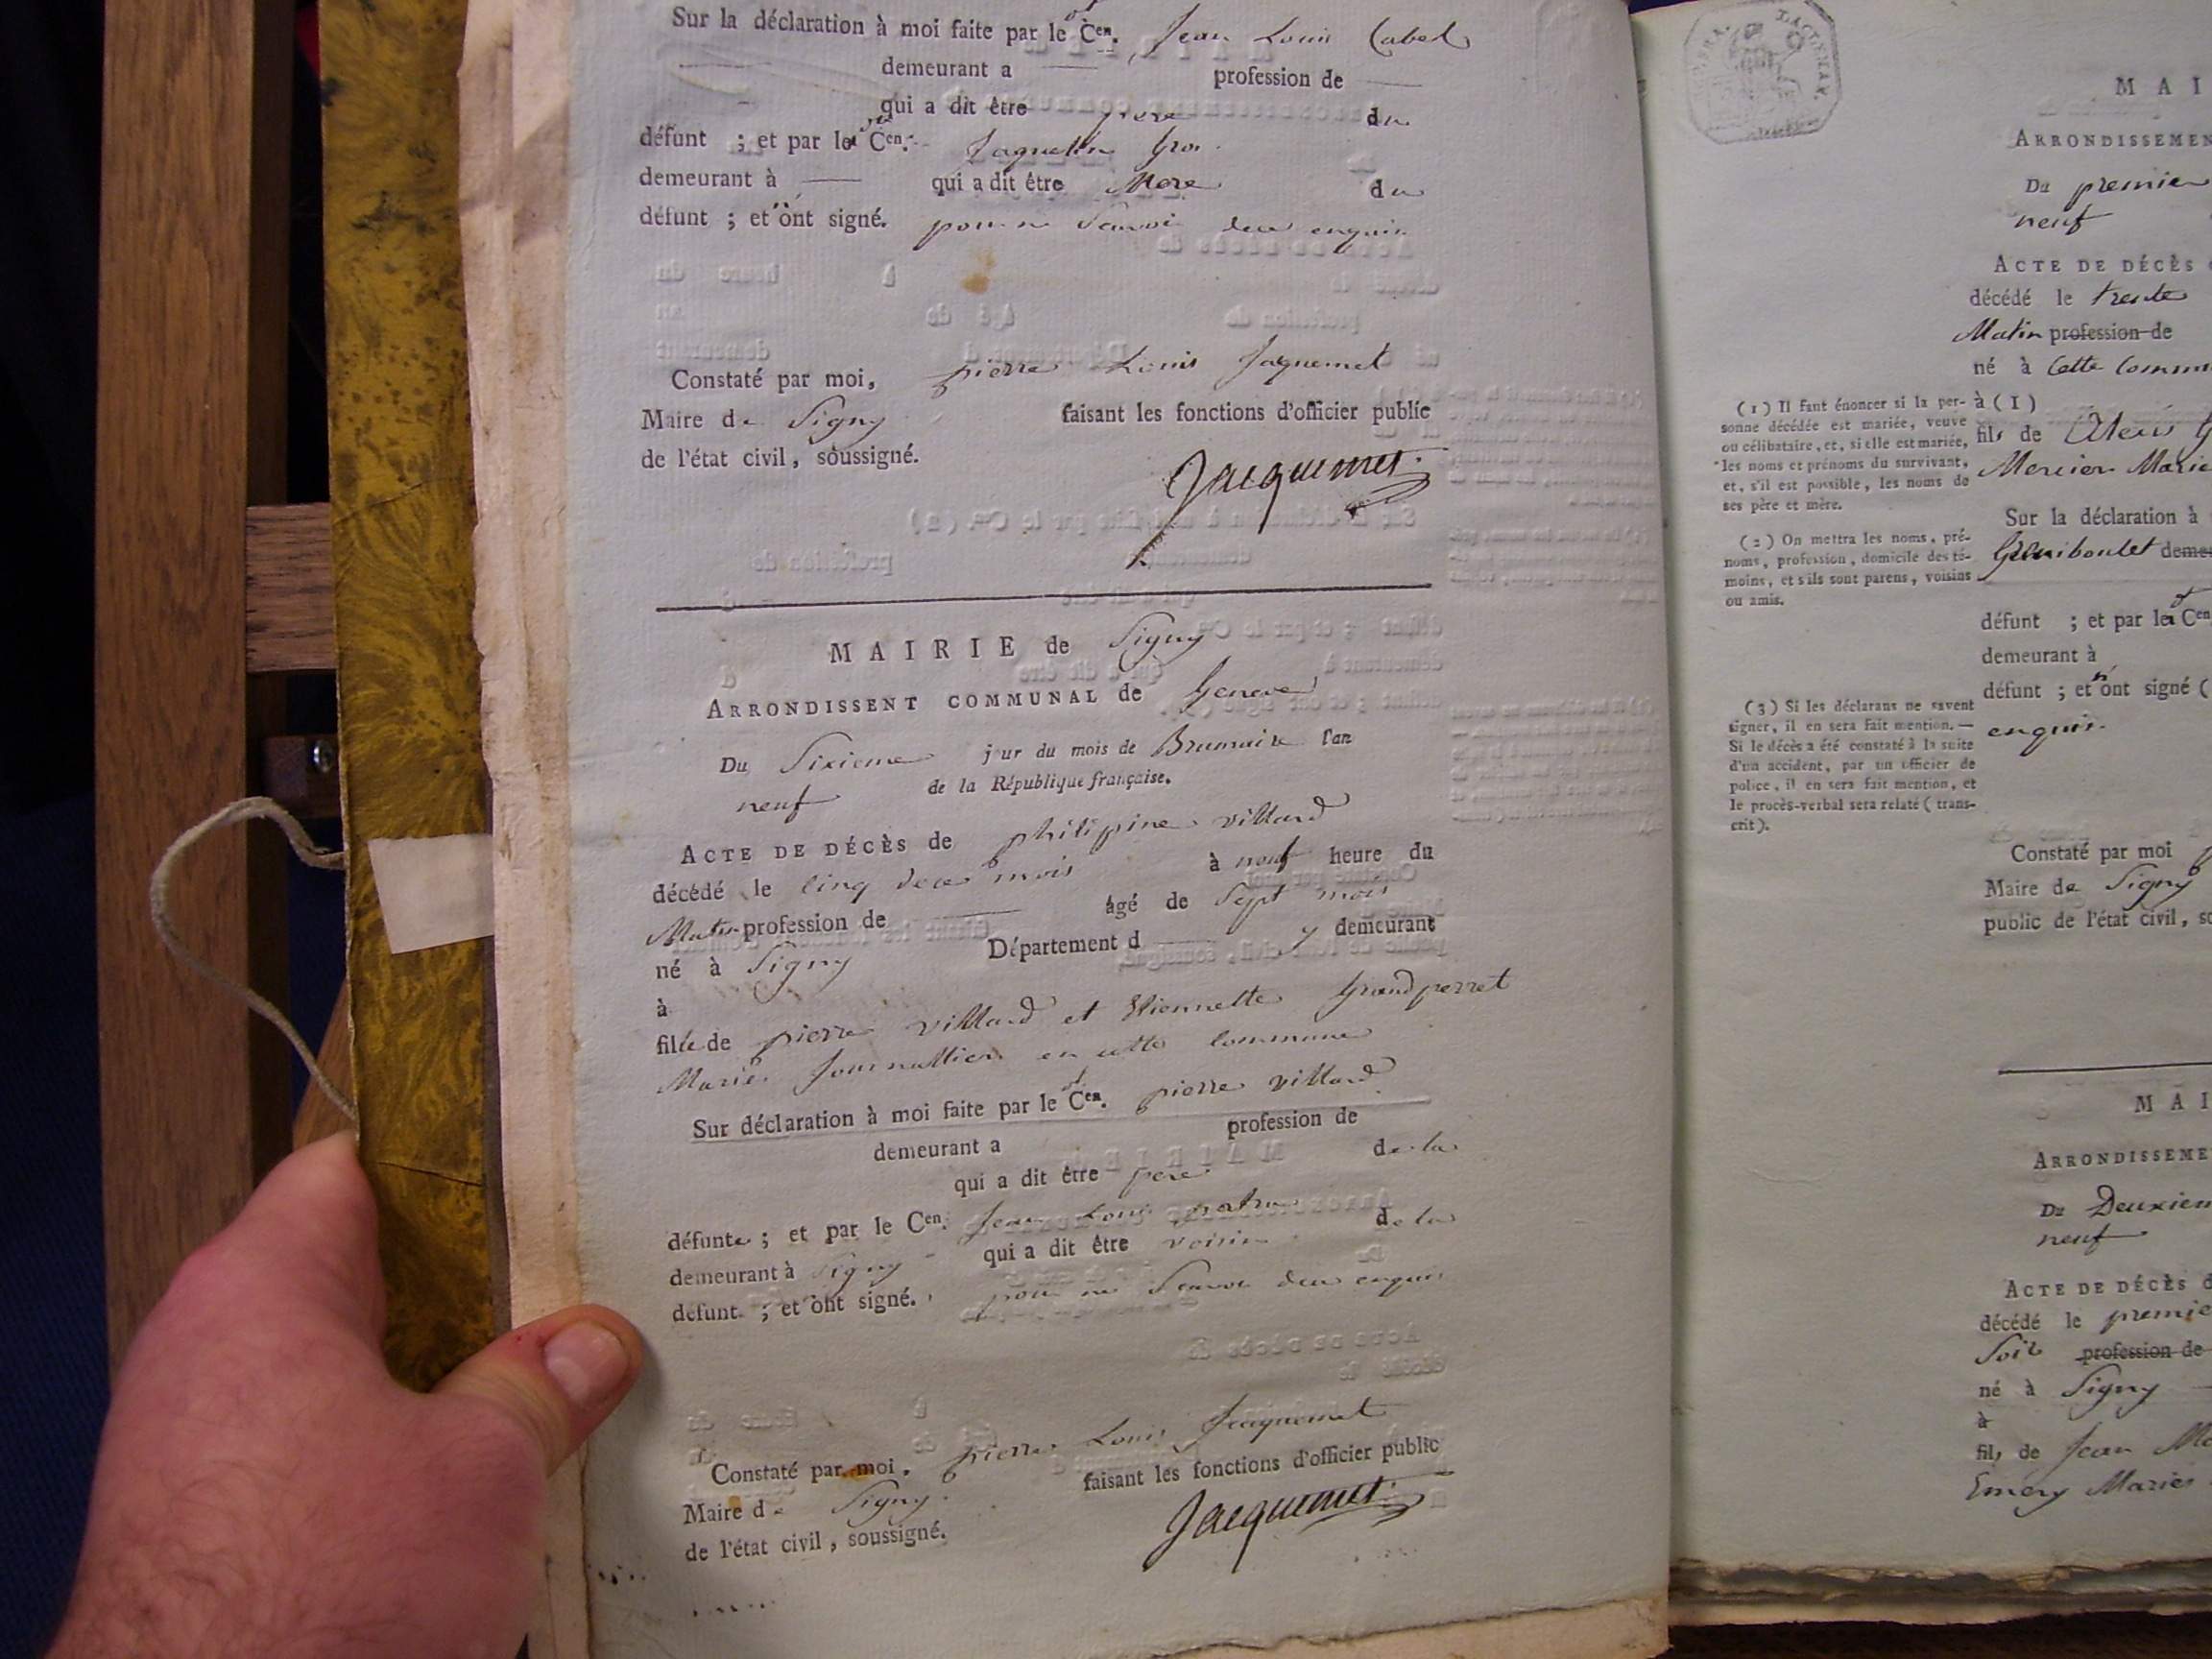 Sur la déclaration à moi faite par le Cen. Jean Louis Cabel
demeurant a profession de
qui a dit être frere du
défunt ; et par la Cen. Jaquelin Gros
demeurant à qui a dit être Mere du
défunt ; et n'ont signé. pour ne Scavoir dece enquis
Constaté par moi, pierre Louis Jaquemet
Maire de Signy faisant les fonctions d'officier public
de l'état civil, soussigné.
Jacquemet
MAIRIE de Signy
ARRONDISSENT COMMUNAL de Geneve
Du Sixieme jour du mois de Brumaire l'an
neuf de la République française.
ACTE DE DÉCÈS de philipine villard
décédé le Cinq dece mois à neuf heure du
Matin profession de âgé de Sept mois
né à Signy Département d y demeurant
à
fille de pierre villard et Etiennette Grandperret
Mariés Journallier en cette Commune
Sur déclaration à moi faite par le Cen. pierre villard
demeurant a profession de
qui a dit être pere de la
défunte ; et par le Cen. Jean Louis
demeurant à Signy qui a dit être voisin de la
défunt ; et ont signé. pour ne Scavoir dece enquis
Constaté par moi, pierre Louis Jaquemet
Maire de Signy faisant les fonctions d'officier public
de l'état civil, soussigné.
Jacquemet
MAI
ARRONDISSEMEN
Du premier
neuf
ACTE DE DÉCÈS
décédé le trente
Matin profession de
né à Cette Commu
à (1)
fils de Alexis
Mercier Marie
(1) Il faut énoncer si la per-
sonne décédée est mariée, veuve
ou célibataire, et, si elle est mariée,
les noms et prénoms du survivant,
et, s'il est possible, les noms de
ses père et mère.
Sur la déclaration à
Guiboulet deme
(2) On mettra les noms, pré-
noms, profession, domicile des té-
moins, et s'ils sont parens, voisins
ou amis.
défunt ; et par la Cen
demeurant à
défunt ; et n'ont signé (
enquis.
(3) Si les déclarans ne savent
signer, il en sera fait mention. —
Si le décès a été constaté à la suite
d'un accident, par un officier de
police, il en sera fait mention, et
le procès-verbal sera relaté (trans-
crit).
Constaté par moi
Maire de Signy
public de l'état civil, so
MAI
ARRONDISSEME
Du Deuxiem
neuf
ACTE DE DÉCÈS d
décédé le premie
Soir profession de
né à Signy
à
fils de Jean
Emery Mariés